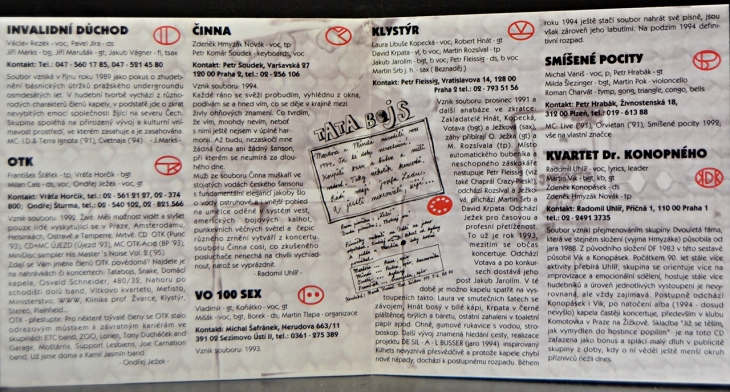 INVALIDNÍ DŮCHOD
Václav Rezek - voc, Pavel Jíra - ds
Jiří Marks - bg, Jiří Marušák - gt, Jakub Vágner - fl, tsax
Kontakt: Tel.: 047 - 560 17 85, 047 - 521 45 80
Soubor vznikl v říjnu roku 1989 jako pokus o zhudeb-
nění básnických útržků pražského undergroundu
osmdesátých let. V hudební tvorbě vychází z různo-
rodých charakterů členů kapely, v podstatě jde o zkrat
nevybitých emocí společnosti žijící na severu Čech.
Skupina spoléhá na přirozený vývoj a kulturní vní-
mavost prostředí, ve kterém zasahuje a je zasahována.
MC: I.D.& Terra Ignota ('91), Cvetnaja ('94) - J.Marks -
OTK
František Štářek - tp, Vráťa Horčík - bgt
Milan Cais - ds, voc, Ondřej Ježek - voc, gt
Kontakt: Vráťa Horčík, tel.: 02 - 561 91 27, 02 - 374
800; Ondřej Šturma, tel.: 02 - 540 102, 02 - 821 566
Vznik souboru: 1992. Živě: Měli možnost vidět a slyšet
pouze lidé vyskytující se v Praze, Amsterdamu,
Helsinkách, Ostravě a Temptne. Mrtvě: CD OTK (Punc
'93), CD+MC ÚJEZD (Újezd '93), MC OTK-Acid (BP '93),
MiniDisc sampler His Master's Noise Vol. 2 ('95).
Zdají se Vám jména členů OTK povědomá? Najdete je
na nahrávkách či koncertech: Tatabojs, Snake, Domácí
kapela, Osvald Schneider, 480/32, Nahoru po
schodišti dolů band, Vltkovo kvarteto, Mefisto,
Ministerstvo, WWW, Klinika prof. Žvarce, Klystýr,
Stereo, Plainfield...
OTK - přestupte. Pro některé bývalé členy se OTK stalo
odrazovým můstkem k závratným kariérám ve
skupinách ETC band, ZOO, Lorien, Tony Ducháček and
Garage, Moštárna, Support Lesbiens, Joe Carnation
band, Už jsme doma a Kamil Jasmín band.
- Ondřej Ježek -
ČINNA
Zdeněk Hmyzák Novák - voc, tp
Petr Komár Soudek - keyboards, voc
Kontakt: Petr Soudek, Varšavská 27
120 00 Praha 2, tel.: 02 - 256 106
Vznik souboru: 1994.
Každé ráno se svěží probudím, vyhlídnu z okna,
podívám se a hned vím, co se děje v krajině mezi
živly ohňových znamení. Co tvrdím,
že vím, mnohdy nevím, neboť
s nimi ještě nejsem v úplné har-
monii. Až budu, nezaskočí mne
žádná činna ani žádný šanson,
při kterém se neumírá za dlou-
hého dne.
Muž ze souboru Činna muškaří ve
stojatých vodách českého šansonu
s fundamentální elegancí jakoby šlo
o vody pstruhové a vnější pohled
na umělce oděné v jistém vest,
amerických bojových kalhot,
punkevních věčných světel a čepic
různého znění vytváří z koncertu
souboru Činna cosi, co zkušeného
posluchače nenechá na chvíli vychlad-
nout, natož se vyprázdnit.
- Radomil Uhlíř -
VO 100 SEX
Vladimír - gt, Koňátko - voc, gt
Míšák - voc, bgt, Borek - ds, Martin Tlapa - organizace
Kontakt: Michal Šafránek, Herudova 663/11
391 02 Sezimovo Ústí II, tel.: 0361 - 275 389
Vznik souboru: 1993.
TATA BOJS
KLYSTÝR
Laura Libuše Kopecká - voc, Robert Hnát - gt
David Krpata - vl, b voc, Martin Rozsíval - tp
Jakub Jarolím - bgt, b voc, Petr Fleissig - ds, b voc
Martin Srb j. h. - sax ( Beznaděj )
Kontakt: Petr Fleissig, Vratislavova 14, 128 00
Praha 2 tel.: 02 - 793 51 56
Vznik souboru: prosinec 1991 a
další anabáze ve zkratce:
Zakladatelé Hnát, Kopecká,
Votava (bgt) a Ježková (sax),
záhy přibírají O. Ježka (gt) a
M. Rozsívala (tp). Místo
automatického bubeníka a
neschopného záskokáře
nastupuje Petr Fleissig (viz
také Chapral Crazy-Řepín),
odchází Rozsíval a Ježko-
vá, přichází Martin Srb a
David Krpata. Odchází
Ježek pro časovou a
profesní přetíženost.
To už je rok 1993,
mezitím se občas
koncertuje. Odchází
Votava a po konkur-
sech dostává jeho
post Jakub Jarolím. V té
době je možno kapelu spatřit na vys-
toupeních takto: Laura ve smutečních šatech se
závojem, Hnát bosý v bílé kápi, Krpata v černé
pláštěnce, brýlích a baretu, ostatní zahaleni v toaletní
papír apod. Ohně, gumové rukavice s vodou, stro-
boskop. Další vývoj znamená hledání cesty, realizace
projektu DE SIL - A - L BUSSER (jaro 1994) inspirovaný
Kilhets nevyznívá přesvědčivě a protože kapele chybí
nové nápady, dochází k postupnému rozpadu. Během
roku 1994 ještě stačí soubor nahrát své písně, jsou
však zároveň jeho labutími. Na podzim 1994 defini-
tivní rozpad.
SMÍŠENÉ POCITY
Michal Vaniš - voc, p, Petr Hrabák - gt
Milda Šezinger - bgt, Martin Pok - violoncello
Roman Charvát - tymp, gong, triangl, congo, bells
Kontakt: Petr Hrabák, Živnostenská 18,
312 00 Plzeň, tel.: 019 - 613 88
MC: Live ('91), Orvietan ('91), Smíšené pocity 1992,
vše na vlastní značce
KVARTET Dr. KONOPNÉHO
Radomil Uhlíř - voc, lyrics, leader
Martin Vik - bgt, kb, gt
Zdeněk Konopásek - ds
Zdeněk Hmyzák Novák - tp
Kontakt: Radomil Uhlíř, Příčná 1, 110 00 Praha 1
tel.: 02 - 2491 3735
Soubor vznikl přejmenováním skupiny Dvouletá fáma,
která ve stejném složení (vyjma Hmyzáka) působila od
jara 1988. Z původního složení DF 1983 v této sestavě
působil Vik a Konopásek. Počátkem 90. let stále více
aktivity přebírá Uhlíř, skupina se orientuje více na
improvizace a emocionální sdělení, hostuje stále více
hudebníků a úroveň jednotlivých vystoupení je nevy-
rovnaná, ale vždy zajímavá. Postupně odchází
Konopásek i Vik, po natočení alba (1994 - dosud
nevyšlo) kapela častěji koncertuje, především v klubu
Komotovka v Praze na Žižkově. Skladba "Až se těším,
jak vymydlen do hostince popílím" je na toto CD
zařazena jako bonus a splácí malý dluh v publicitě
skupiny z doby, kdy o ní věděl ještě menší okruh
příznivců nežli dnes.